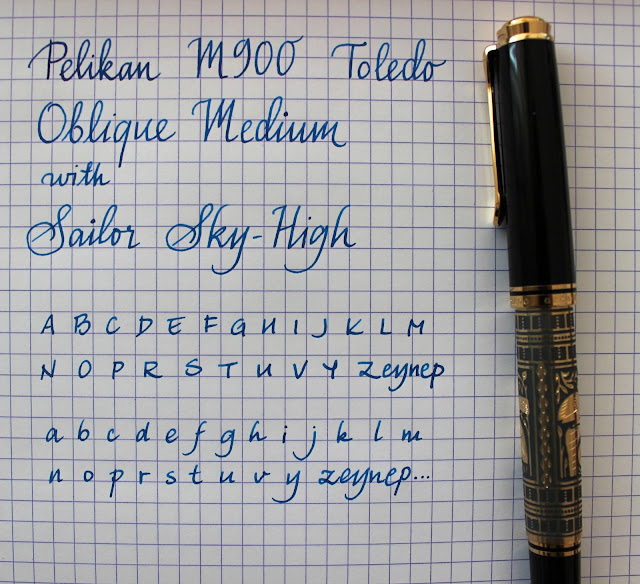 Pelikan M900 Toledo
Oblique Medium
with
Sailor Sky-High
A B C D E F G H I J K L M
N O P R S T U V Y Zeynep
a b c d e f g h i j k l m
n o p r s t u v y zeynep...